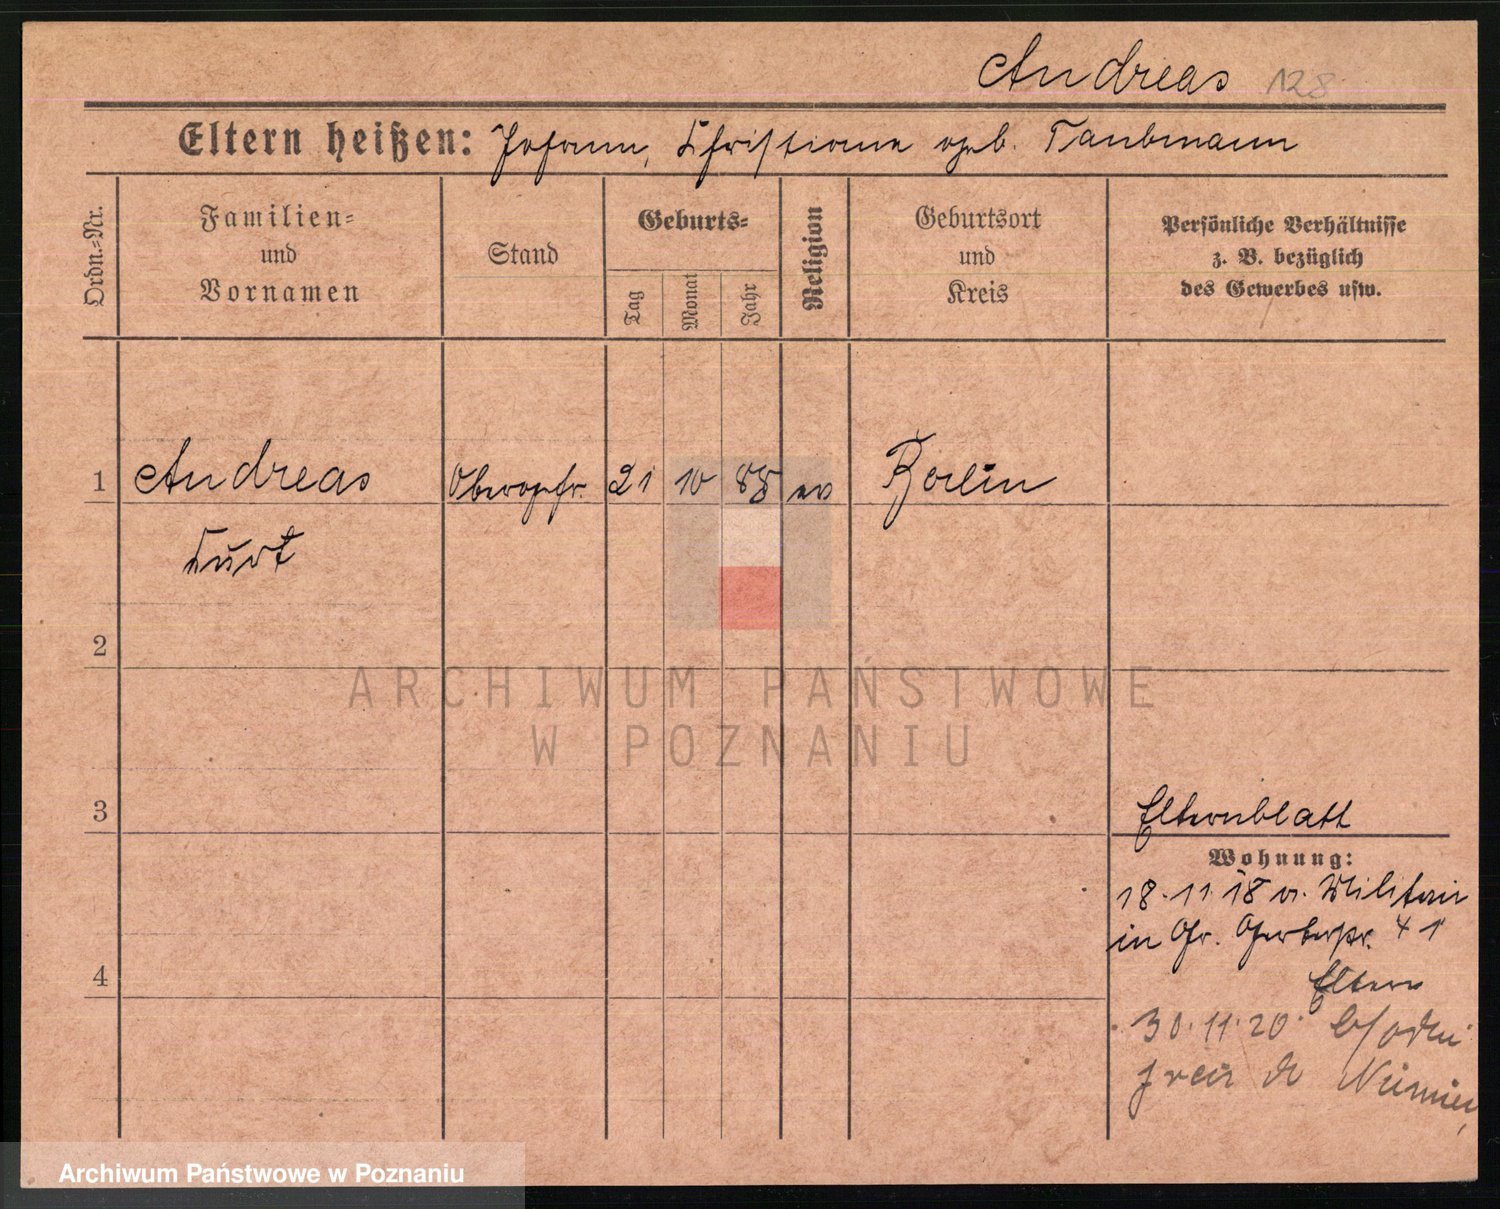 Andreas 128
Eltern heißen: Johann, Christiane geb. Taubmann
Ordn.=Nr.
Familien=
und
Vornamen
Stand
Geburts=
Tag
Monat
Jahr
Religion
Geburtsort
und
Kreis
Persönliche Verhältnisse
z. B. bezüglich
des Gewerbes usw.
1 Andreas Obergefr. 21 10 88 ev Berlin
Curt
2
3
4
Elternblatt
Wohnung:
18.11.18 v. Militair
in Gr. Gerberstr. 41
Eltern
30.11.20
do Niemiec
ARCHIWUM PAŃSTWOWE
W POZNANIU
Archiwum Państwowe w Poznaniu